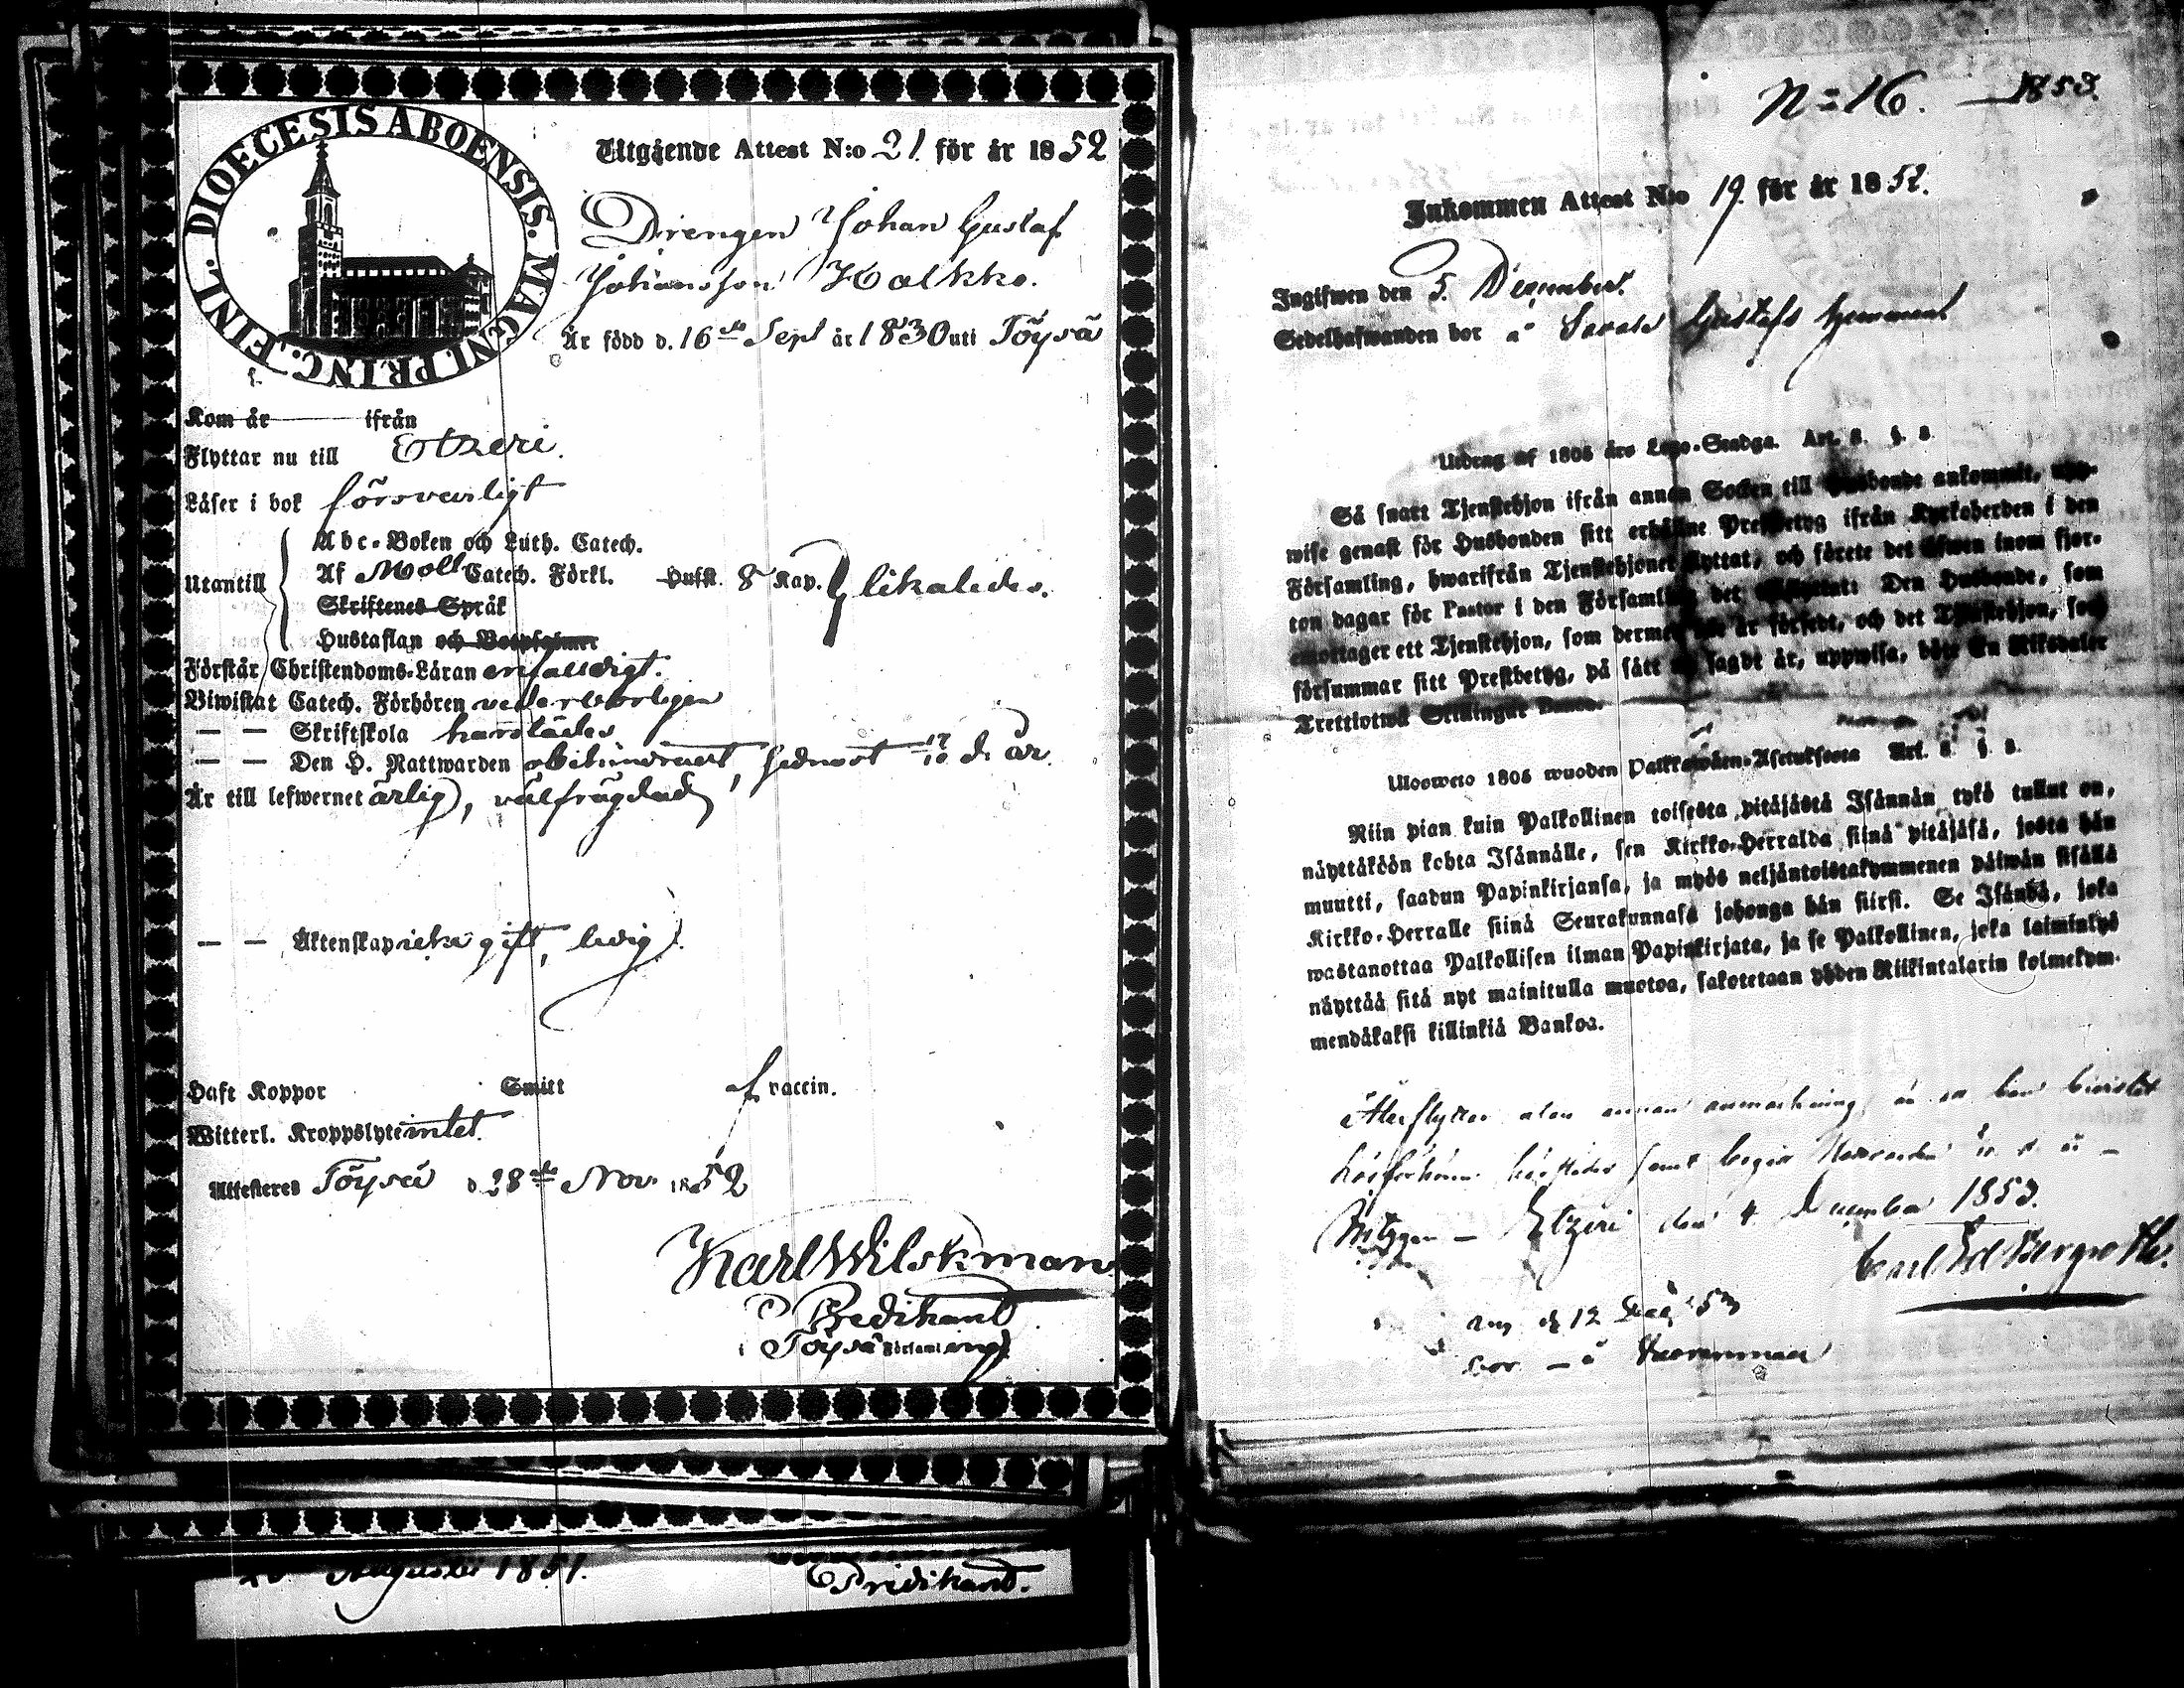 DIOECESIS ABOENSIS. MAGNI. PRINC. FINL.
Utgående Attest N:o 21. för år 1852
Drengen Johan Gustaf
Johansson Kalkko.
Är född d. 16de Sept år 1830 uti Töysä
Kom år ifrån
Flyttar nu till Etzeri.
Läser i bok försvarligt
Abc-Boken och Luth. Catech.
Utantill Af Moll Catech. Förkl. Hufst. 8 Kap. likaledes.
Skriftenes Språk
Hustaflan och
Förstår Christendoms-Läran enfalldigt.
Biwistat Catech. Förhören vederbörligen
— — Skriftskola härstädes
— — Den H. Nattwarden obehindradt, sednast 17/10 d. år
Är till lefwernet ärlig, välfrägdad
— — Äktenskap icke gift, ledig.
Haft Koppor Smitt af vaccin.
Witterl. Kroppslyte intet.
Attesteres Töysä d. 28de Nov. 1852
Karl Wilskman
Predikant
i Töysä Församling
Augusti 1851.
Predikant.
N=16. — 1853.
Inkommen Attest N:o 19. för år 1852.
Ingifwen den 5. December.
Sedelhafwanden bor å Gustafs hemman
Utdrag af 1805 års Lego-Stadga. Art. 8. §. 8
Så snart Tjenstehjon ifrån annan Socken till Husbonde ankommit, upp-
wise genast för Husbonden sitt erhållne Prestbetyg ifrån Kyrkoherden i den
Församling, hwarifrån Tjenstehjonet flyttat, och förete det äfwen inom fjor-
ton dagar för Pastor i den Församling det Den Husbonde, som
emottager ett Tjenstehjon, som dermed är försedt, och det Tjenstehjon, som
försummar sitt Prestbetyg, på sätt sagdt är, uppwisa, böte En Riksdaler
Trettiotwå Skillingar Banco.
Uloswero 1805 wuoden Palkkawäen-Asetuksesta Art. 8. §. 8.
Niin pian kuin Palkollinen toisesta pitäjästä Isännän tykö tullut on,
näyttäköön kohta Isännälle, sen Kirkko-Herralda siinä pitäjäsä, josta hän
muutti, saadun Papinkirjansa, ja myös neljäntoistakymmenen päiwän sisällä
Kirkko-Herralle siinä Seurakunnasa johonga hän siirsi. Se Isändä, joka
wastanottaa Palkollisen ilman Papinkirjata, ja se Palkollinen, joka laiminlyö
näyttää sitä nyt mainitulla muotoa, sakotetaan yhden Riikintalarin kolmekym-
mendäkaksi killinkiä Bankoa.
Återflyttar utan annan anmärkning än at han bivistat
läsförhören härstädes samt begår Nattvarden
Etzeri den 4 December 1853.
Carl Ed Bergroth.
den 12
bor — å